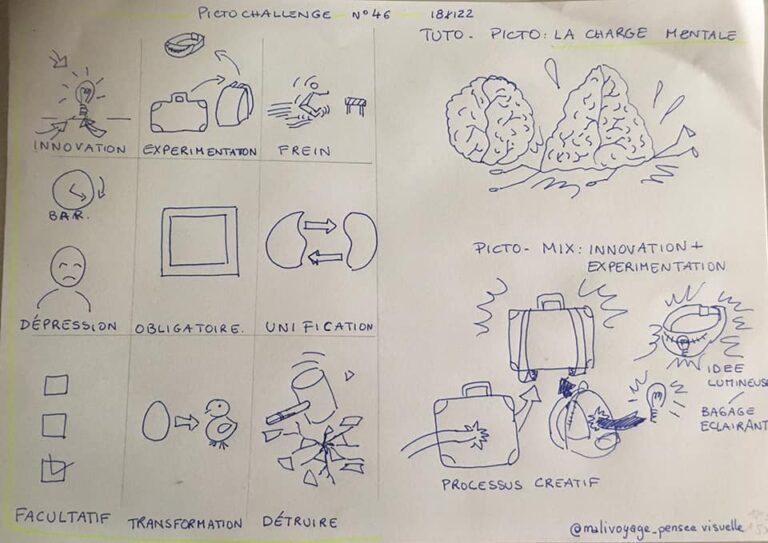 PICTOCHALLENGE - N°46
TUTO - PICTO: LA CHARGE MENTALE
INNOVATION
EXPERIMENTATION
FREIN
BAR.
DÉPRESSION
OBLIGATOIRE.
UNIFICATION
FACULTATIF
TRANSFORMATION
DÉTRUIRE
PICTO - MIX: INNOVATION +
EXPERIMENTATION
IDEE
LUMINEUSE
/
BAGAGE
ECLAIRANT
PROCESSUS CREATIF
@malivoyage_pensee visuelle